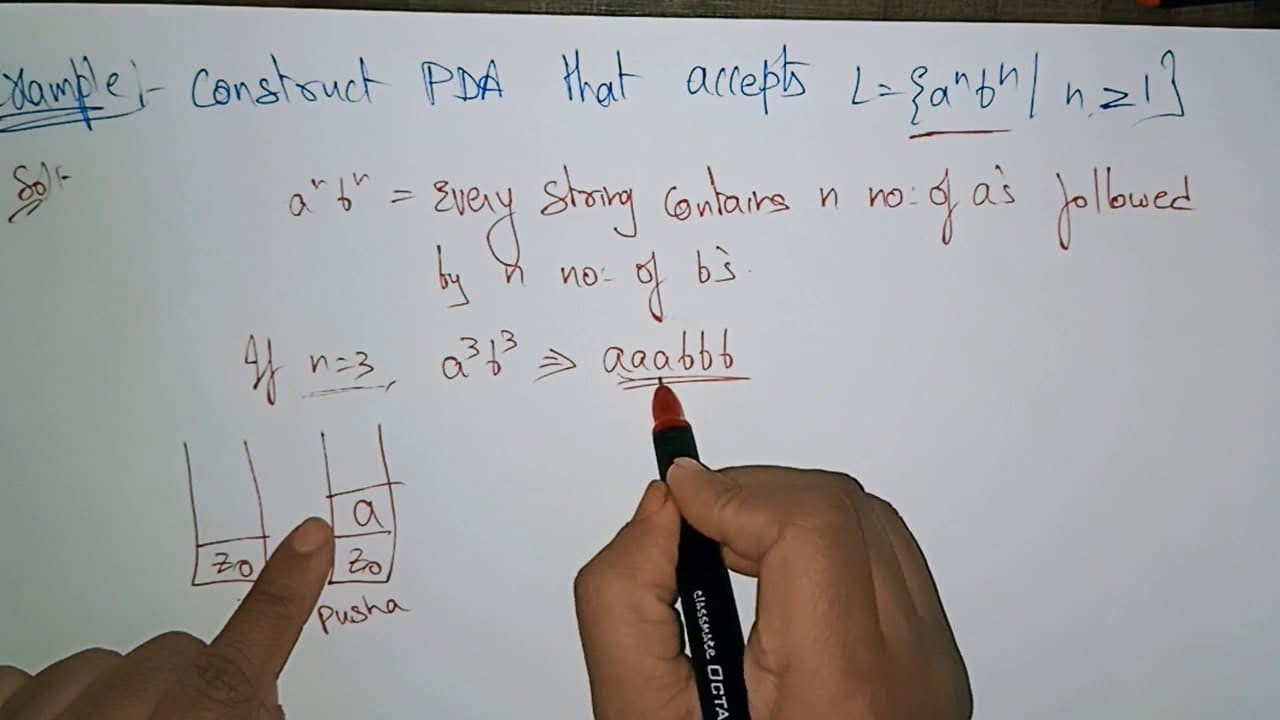 Example:- Construct PDA that accepts L={aⁿbⁿ| n≥1}
Sol:-
aⁿbⁿ = Every string contains n no: of a's followed
by n no: of b's.
If n=3, a³b³ ⇒ aaabbb
a
z₀ z₀
Push a
classmate OCTA